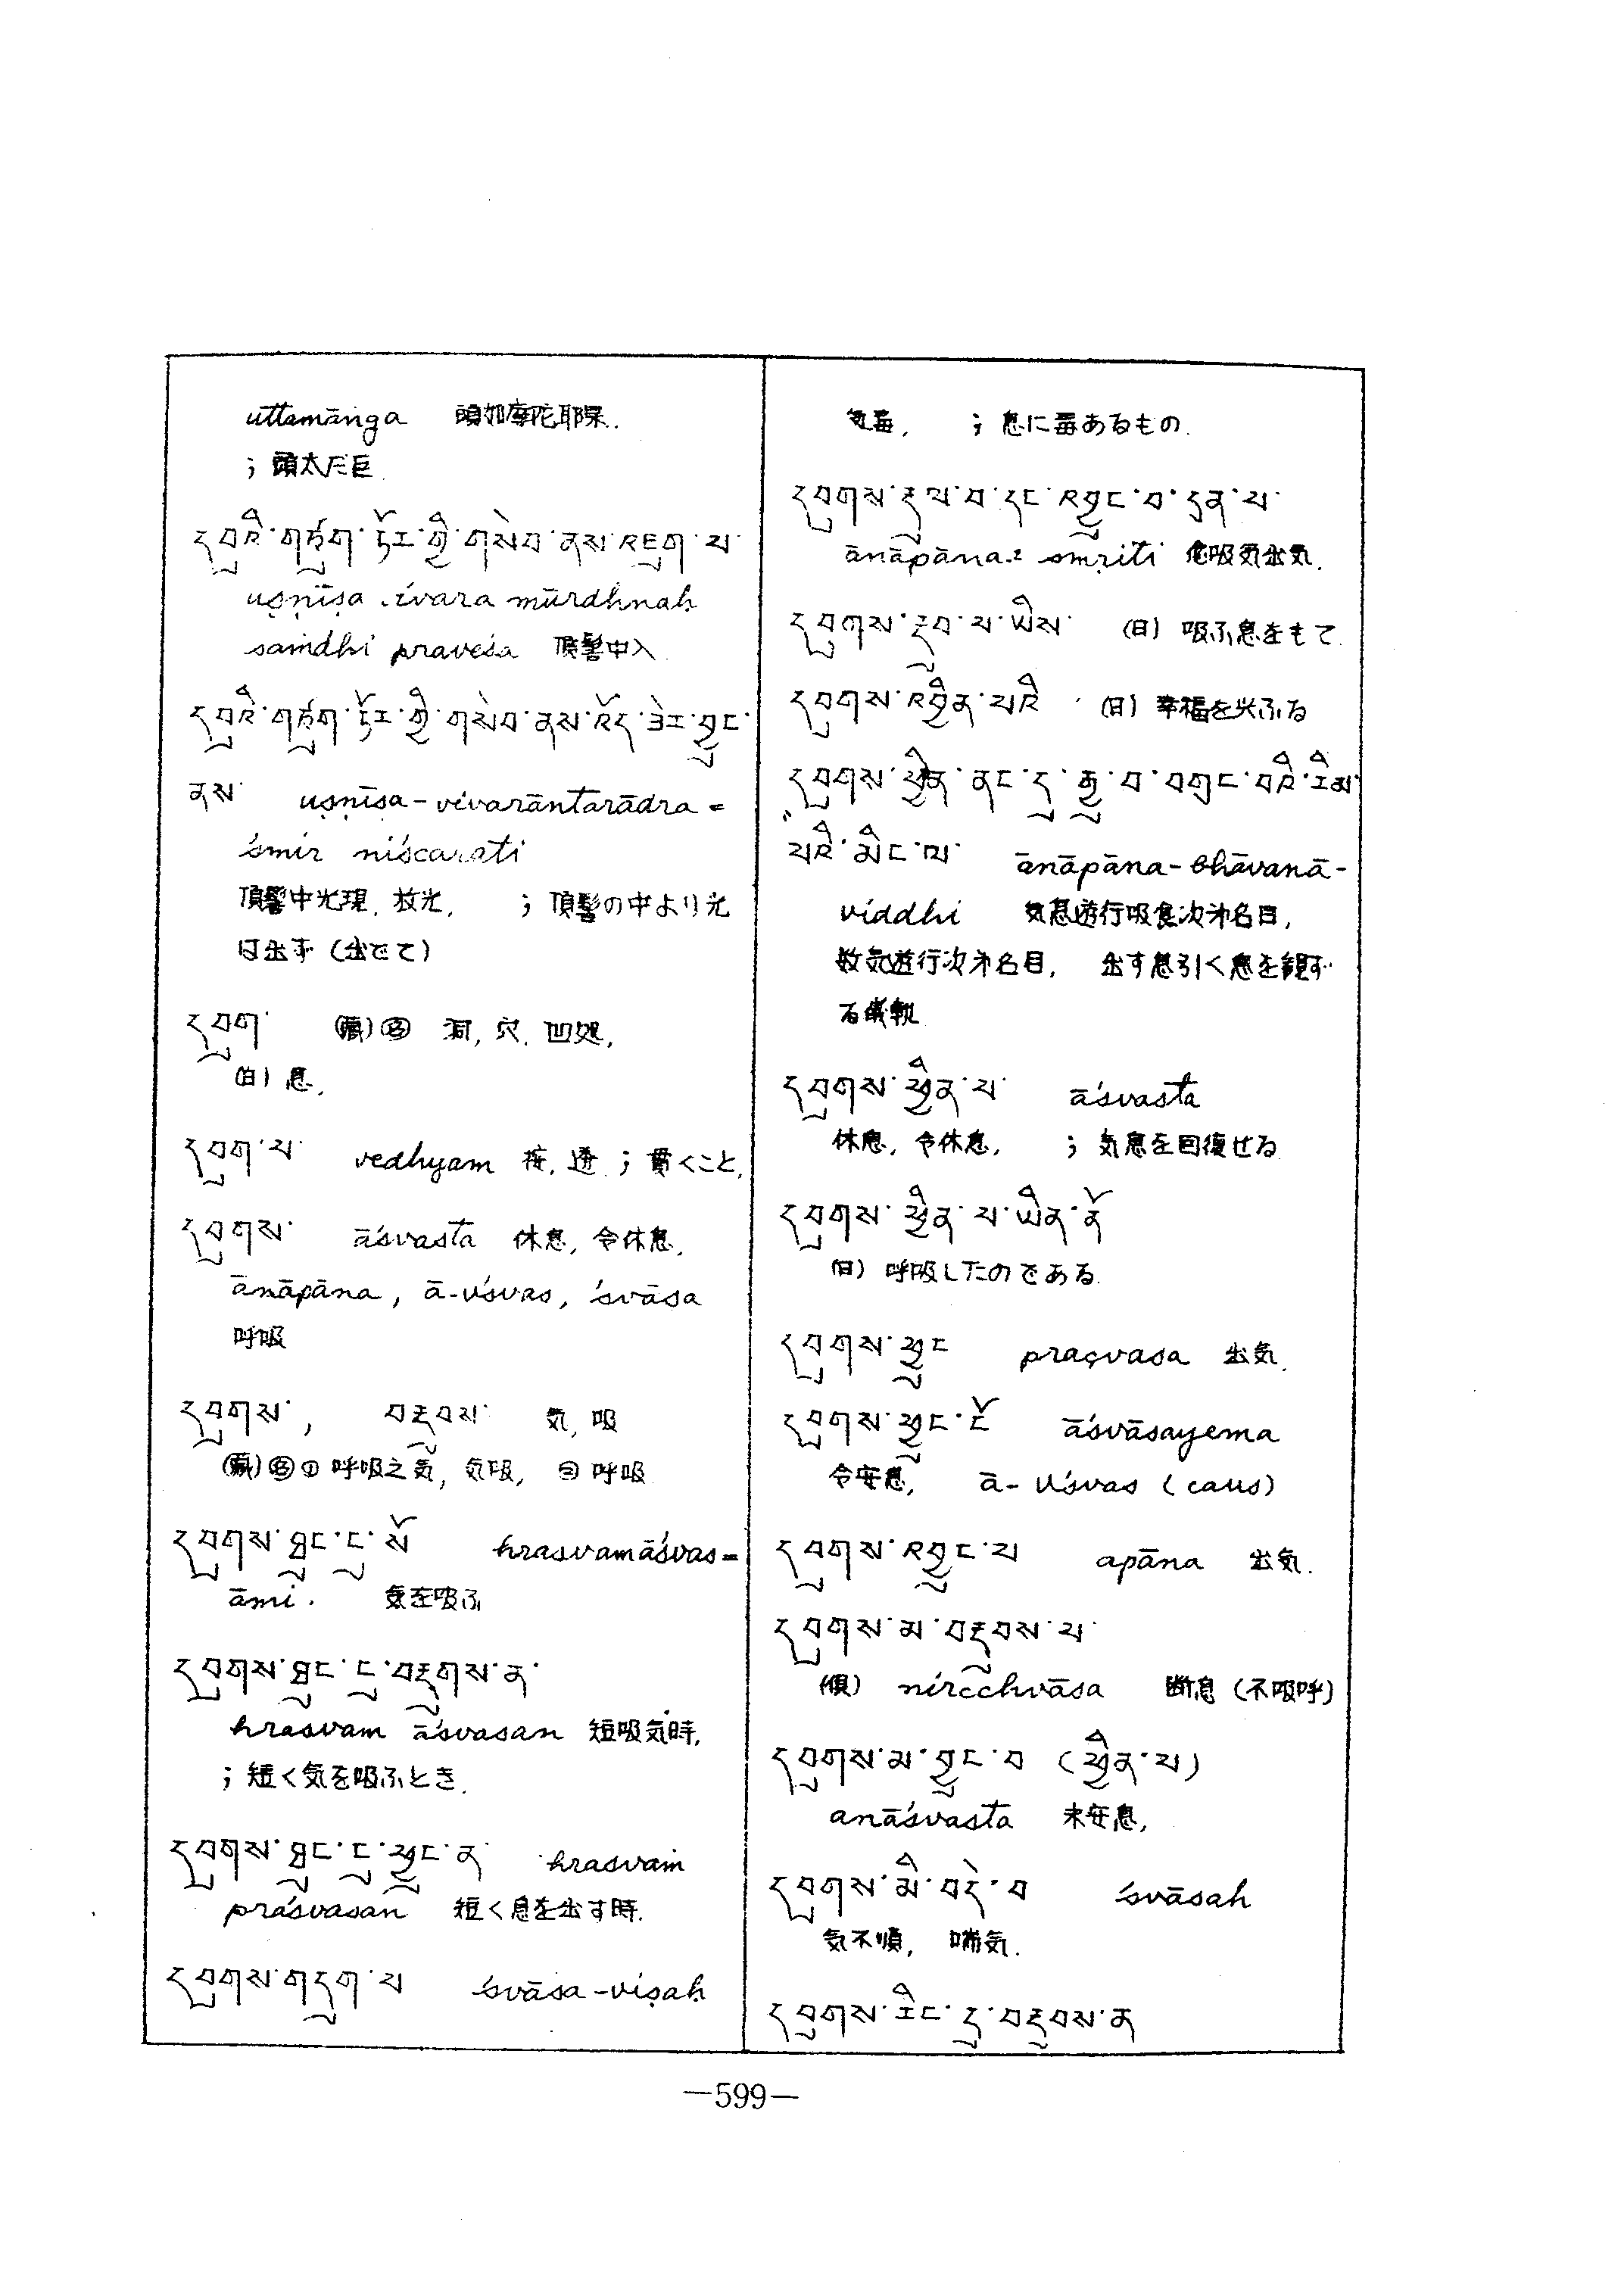 uttamānga 頭如摩陀耶果.
; 頭太だ巨.
དབུའི་གཙུག་ཏོར་གྱི་གསེབ་ནས་འཇུག་པ་
uṣṇīṣa .ivara mūrdhnaḥ
saṁdhi praveśa 頂髻中入.
དབུའི་གཙུག་ཏོར་གྱི་གསེབ་ནས་འོད་ཟེར་བྱུང་
ནས་ uṣṇīṣa-vivarāntarādra=
śmir niścarati
頂髻中光現, 放光, ; 頂髻の中より光
は出す (出でて)
དབུག་ (蔵)㊅ 洞, 穴, 凹処,
(日) 息,
དབུག་པ་ vedhyam 按, 透 ; 貫くこと,
དབུགས་ āśvasta 休息, 令休息,
ānāpāna, ā-√śvas, śvāsa
呼吸
དབུགས་, བརྔུབས་ 気, 吸
(蔵) ① 呼吸之気, 気吸, ② 呼吸
དབུགས་ཐུང་ངུ་སོ hrasvamāśvas=
āmi. 気を吸ふ
དབུགས་ཐུང་ངུ་བརྔུགས་ན་
hrasvam āśvasan 短吸気時,
; 短く気を吸ふとき.
དབུགས་ཐུང་ངུ་ཕྱུང་ན་ hrasvaṁ
praśvasan 短く息を出す時.
དབུགས་གདུག་པ śvāsa-viṣaḥ
気毒, ; 息に毒あるもの.
དབུགས་རྔུལ་བ་དང་འབྱུང་བ་དྲན་པ་
ānāpāna=smṛiti 念吸気出気.
དབུགས་རྔུབ་པ་ཡིས་ (日) 吸ふ息をもて.
དབུགས་འབྱིན་པའི (日) 幸福を与ふる
དབུགས་ཕྱིན་ནང་དུ་རྒྱུ་བ་བཟུང་བའི་རིམ་
པའི་མིང་ལ་ ānāpāna-bhāvanā-
viddhi 気息遊行吸食次第名目,
数気遊行次第名目, 出す息引く息を観ず
る儀軌
དབུགས་ཕྱིན་པ་ āśvasta
休息, 令休息, ; 気息を回復せる
དབུགས་ཕྱིན་པ་ཡིན་ནོ
(日) 呼吸したのである.
དབུགས་ཕྱུང praçvasa 出気.
དབུགས་ཕྱུང་ངོ āśvāsayema
令安息, ā-√śvas (caus)
དབུགས་འབྱུང་པ apāna 出気.
དབུགས་མ་བརྔུབས་པ་
(倶) nircchvāsa 断息 (不吸呼)
དབུགས་མ་བྱུང་བ (ཕྱིན་པ)
anāśvasta 未安息,
དབུགས་མི་བདེ་བ śvāsah
気不順, 喘気.
དབུགས་རིང་དུ་བརྔུབས་ན
—599—